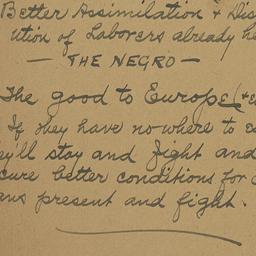 Better Assimilation & Dis
ution of Laborers already he
— THE NEGRO —
The good to Europe (+
If they have nowhere to
ey'll stay and fight and
cure better conditions for
ans present and fight.